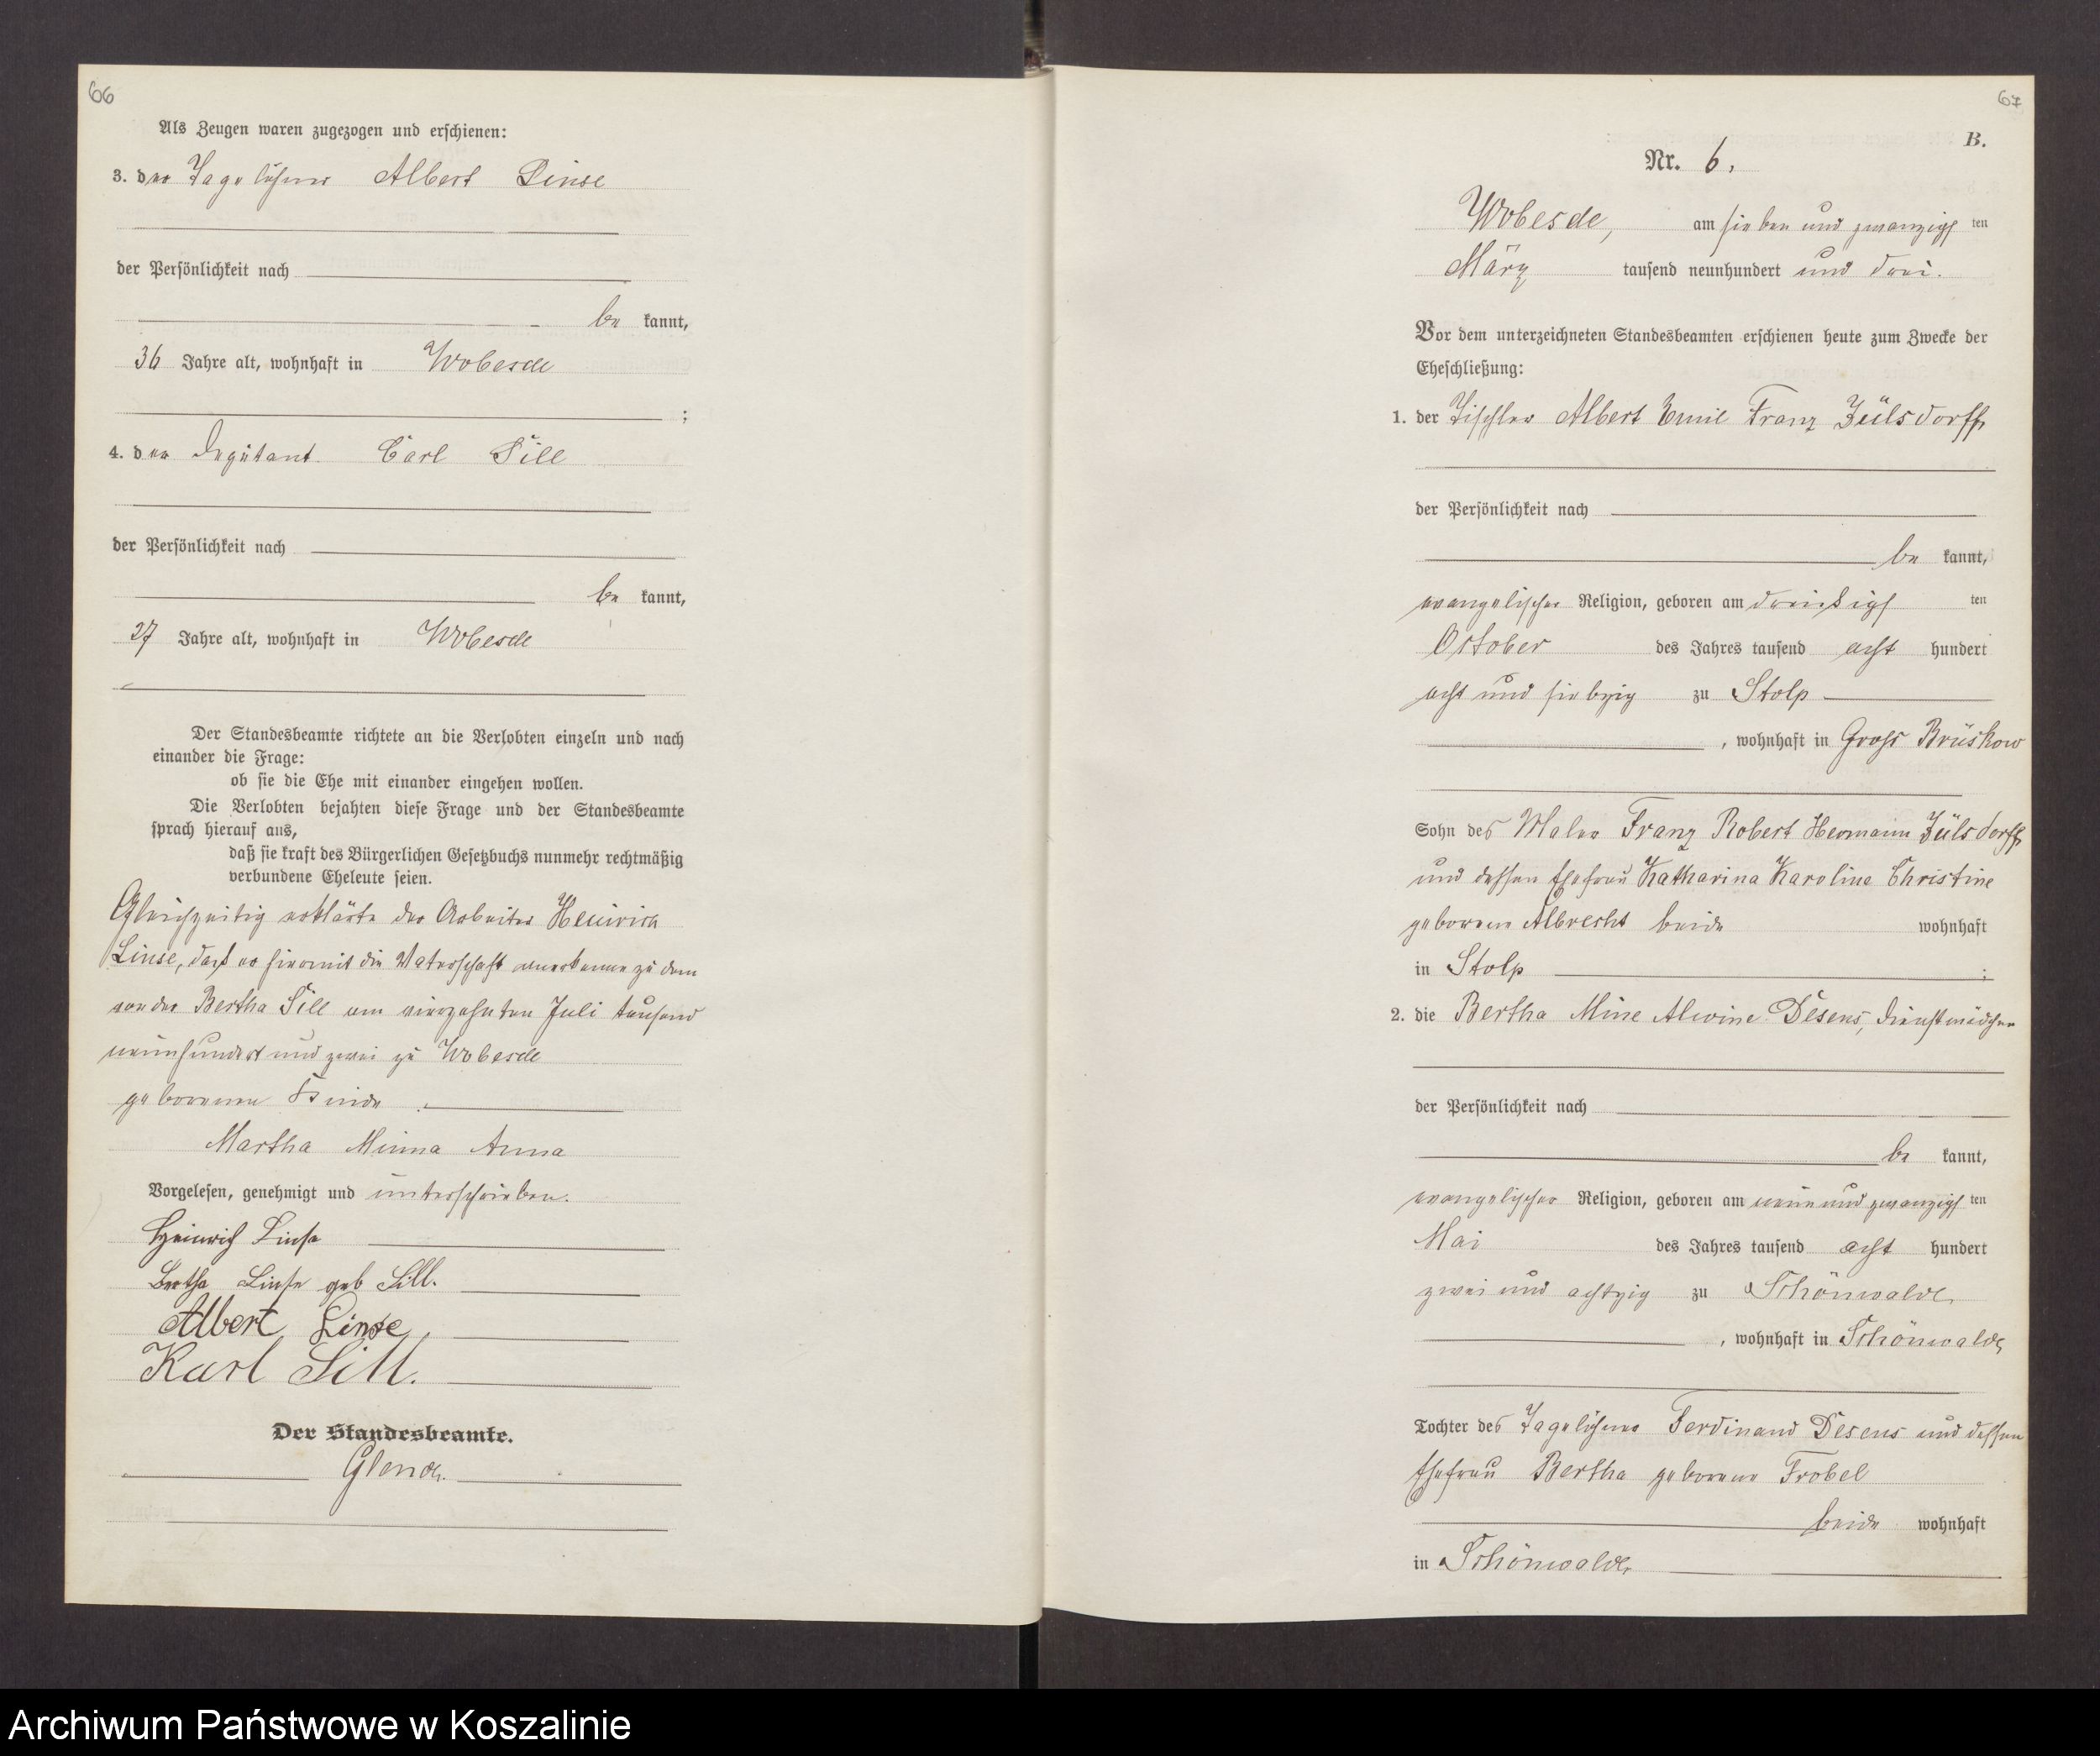 66
Als Zeugen waren zugezogen und erschienen:
3. der Tagelöhner Albert Linse
der Persönlichkeit nach
be kannt,
36 Jahre alt, wohnhaft in Wobesde
;
4. der Deputant Carl Sill
der Persönlichkeit nach
be kannt,
27 Jahre alt, wohnhaft in Wobesde
Der Standesbeamte richtete an die Verlobten einzeln und nach
einander die Frage:
ob sie die Ehe mit einander eingehen wollen.
Die Verlobten bejahten diese Frage und der Standesbeamte
sprach hierauf aus,
daß sie kraft des Bürgerlichen Gesetzbuchs nunmehr rechtmäßig
verbundene Eheleute seien.
Gleichzeitig erklärte der Arbeiter Heinrich
Linse, daß er hiermit die Vaterschaft anerkenne zu dem
von der Bertha Sill am vierzehnten Juli tausend
neunhundert und zwei zu Wobesde
geborenen Kinde
Martha Minna Anna
Vorgelesen, genehmigt und unterschrieben.
Heinrich Linse
Bertha Linse geb Sill.
Albert Linse,
Karl Sill.
Der Standesbeamte.
67
B.
Nr. 6.
Wobesde, am sieben und zwanzigs ten
März tausend neunhundert und drei.
Vor dem unterzeichneten Standesbeamten erschienen heute zum Zwecke der
Eheschließung:
1. der Tischler Albert Emil Franz Zülsdorff,
der Persönlichkeit nach
be kannt,
evangelischer Religion, geboren am dreißigs ten
October des Jahres tausend acht hundert
acht und siebzig zu Stolp
, wohnhaft in Gross Brüskow
Sohn des Maler Franz Robert Hermann Zülsdorff,
und dessen Ehefrau Katharina Karoline Christine
geborene Albrecht beide wohnhaft
in Stolp ;
2. die Bertha Mine Alwine Desens, Dienstmädchen
der Persönlichkeit nach
be kannt,
evangelischer Religion, geboren am neun und zwanzigs ten
Mai des Jahres tausend acht hundert
zwei und achtzig zu Schönwalde,
, wohnhaft in Schönwalde,
Tochter des Tagelöhner Ferdinand Desens und dessen
Ehefrau Bertha geborene Frobel
beide wohnhaft
in Schönwalde,
Archiwum Państwowe w Koszalinie